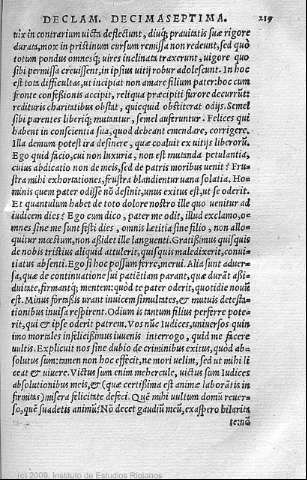 DECLAM. DECIMASEPTIMA. 219
tur in contrarium uicta deflectunt, diuq; prauitatis suæ rigore
durata, mox in pristinum cursum remissa non redeunt, sed quò
totum pondus omnesq́; uires inclinati traxerunt, uigore quo
sibi permissa creuissent, in ipsius uitij robur adolescunt. In hoc
est tota difficultas, ut incipiat non amare filium pater: hoc cum
fronte confessionis accipit, reliqua præcipiti furore decurrũt
redituris charitatibus obstat, quicquid obstiterat odijs. Semel
sibi parentes liberiq; mutantur, semel auferuntur. Felices qui
habent in conscientia sua, quod debeant emendare, corrigere.
Illa demum potest ira desinere, quæ coaluit ex uitijs liberorũ.
Ego quid facio, cui non luxuria, non est mutanda petulantia,
cuius abdicatio non de meis, sed de patris moribus uenit? Fru-
stra mihi exhorationes, frustra blandiuntur uana solatia. Ho
minis quem pater odisse nõ desinit, unus exitus est, ut se oderit.
Et quantulum habet de toto dolore nostro ille quo uenitur ad
iudicem dies? Ego cum dico, pater me odit, illud exclamo, o-
mnes sine me sunt festi dies, omnis lætitia sine filio, non allo-
quitur mœstum, non assidet ille languenti. Gratissimus quisquis
de nobis tristius aliquid attulerit, quisquis maledixerit, conui-
tiatus absenti. Ego si hoc possum ferre, merui. Alia sunt aduer
sa, quæ de continuatione sui patiẽtiam parant, quæ durãt assi-
duitate, firmantq; mentem: quòd te pater oderit, quotidie nouũ
est. Minus fortassis urant inuicem simultates, & mutuis detesta-
tionibus inuisa respirent. Odium is tantum filius perferre pote-
rit, qui & ipse oderit patrem. Vos nũc Iudices, uniuersos quin
imo mortales infelicissimus iuuenis interrogo, quid me facere
uultis. Explicuit nos sine dubio de criminibus exitus, quòd ab-
solutus sum: tamen non hoc effecit, ne mori uelim, sed ut mihi li
ceat & uiuere. Victus sum enim mehercule, uictus sum Iudices
absolutionibus meis, & (quæ certissima est animæ laborãtis in
firmitas) misera felicitate defeci. Quẽ mihi uultum domũ reuer-
so, quẽ suadetis animũ? Nõ decet gaudiũ meũ, ex aspero hilaris,
(c) 2009. Instituto de Estudios Riojanos